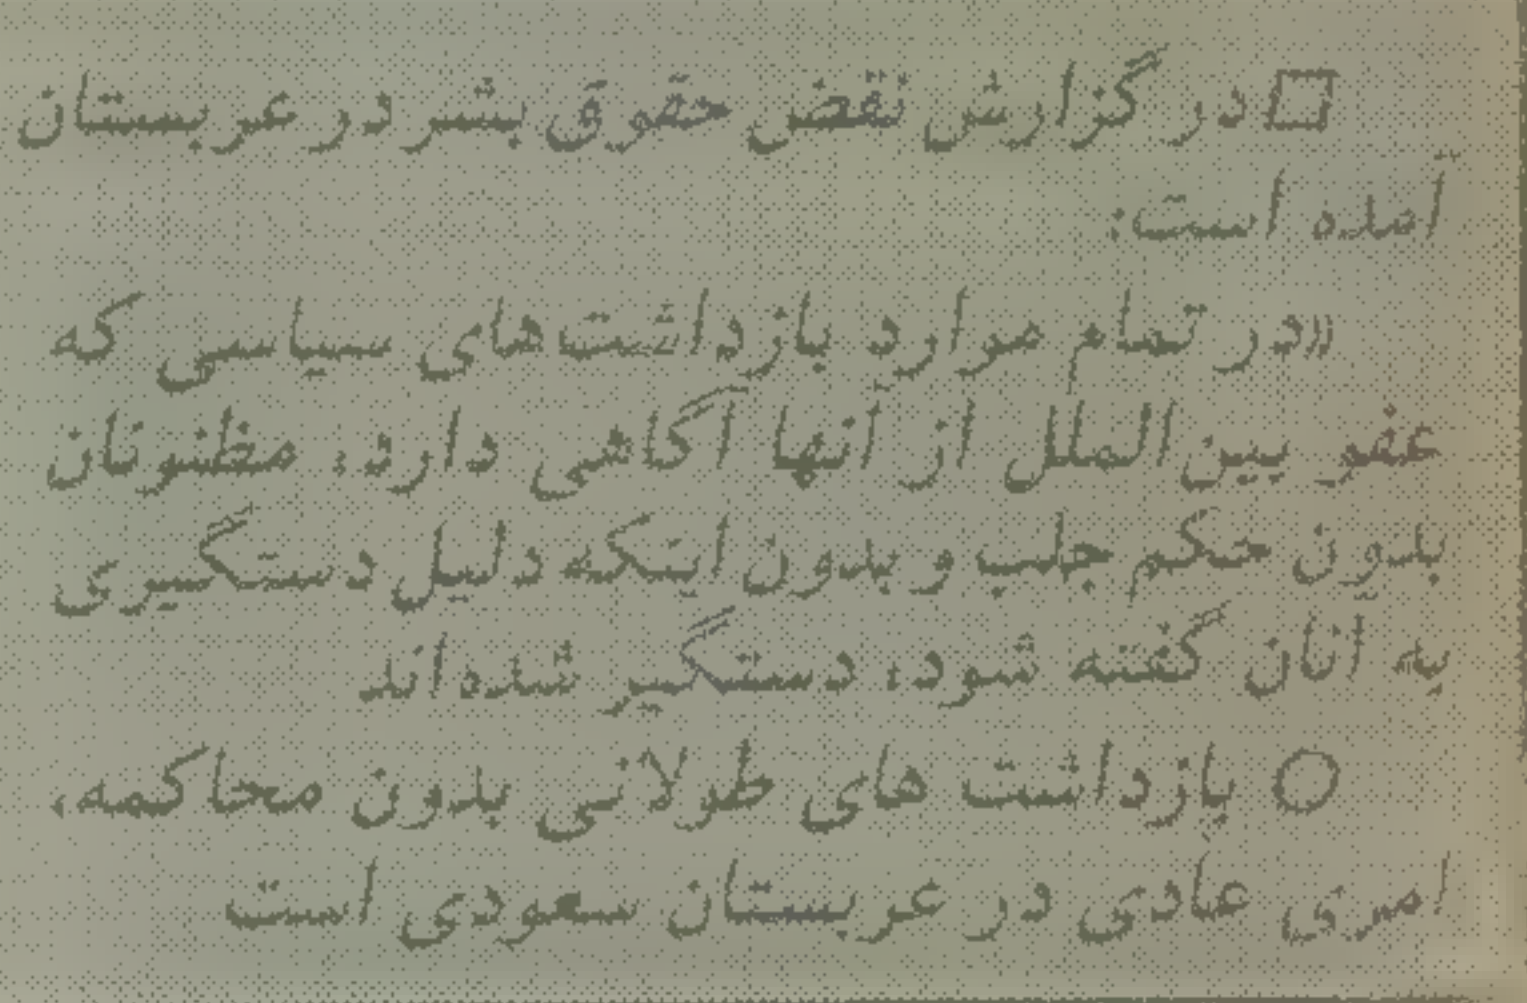 □ در گزارش نقض حقوق بشر در عربستان
آمده است:
«در تمام موارد بازداشت‌های سیاسی که
عفو بین‌الملل از آنها آگاهی دارد، مظنونان
بدون حکم جلب و بدون اینکه دلیل دستگیری
به آنان گفته شود، دستگیر شده‌اند
○ بازداشت های طولانی بدون محاکمه،
امری عادی در عربستان سعودی است